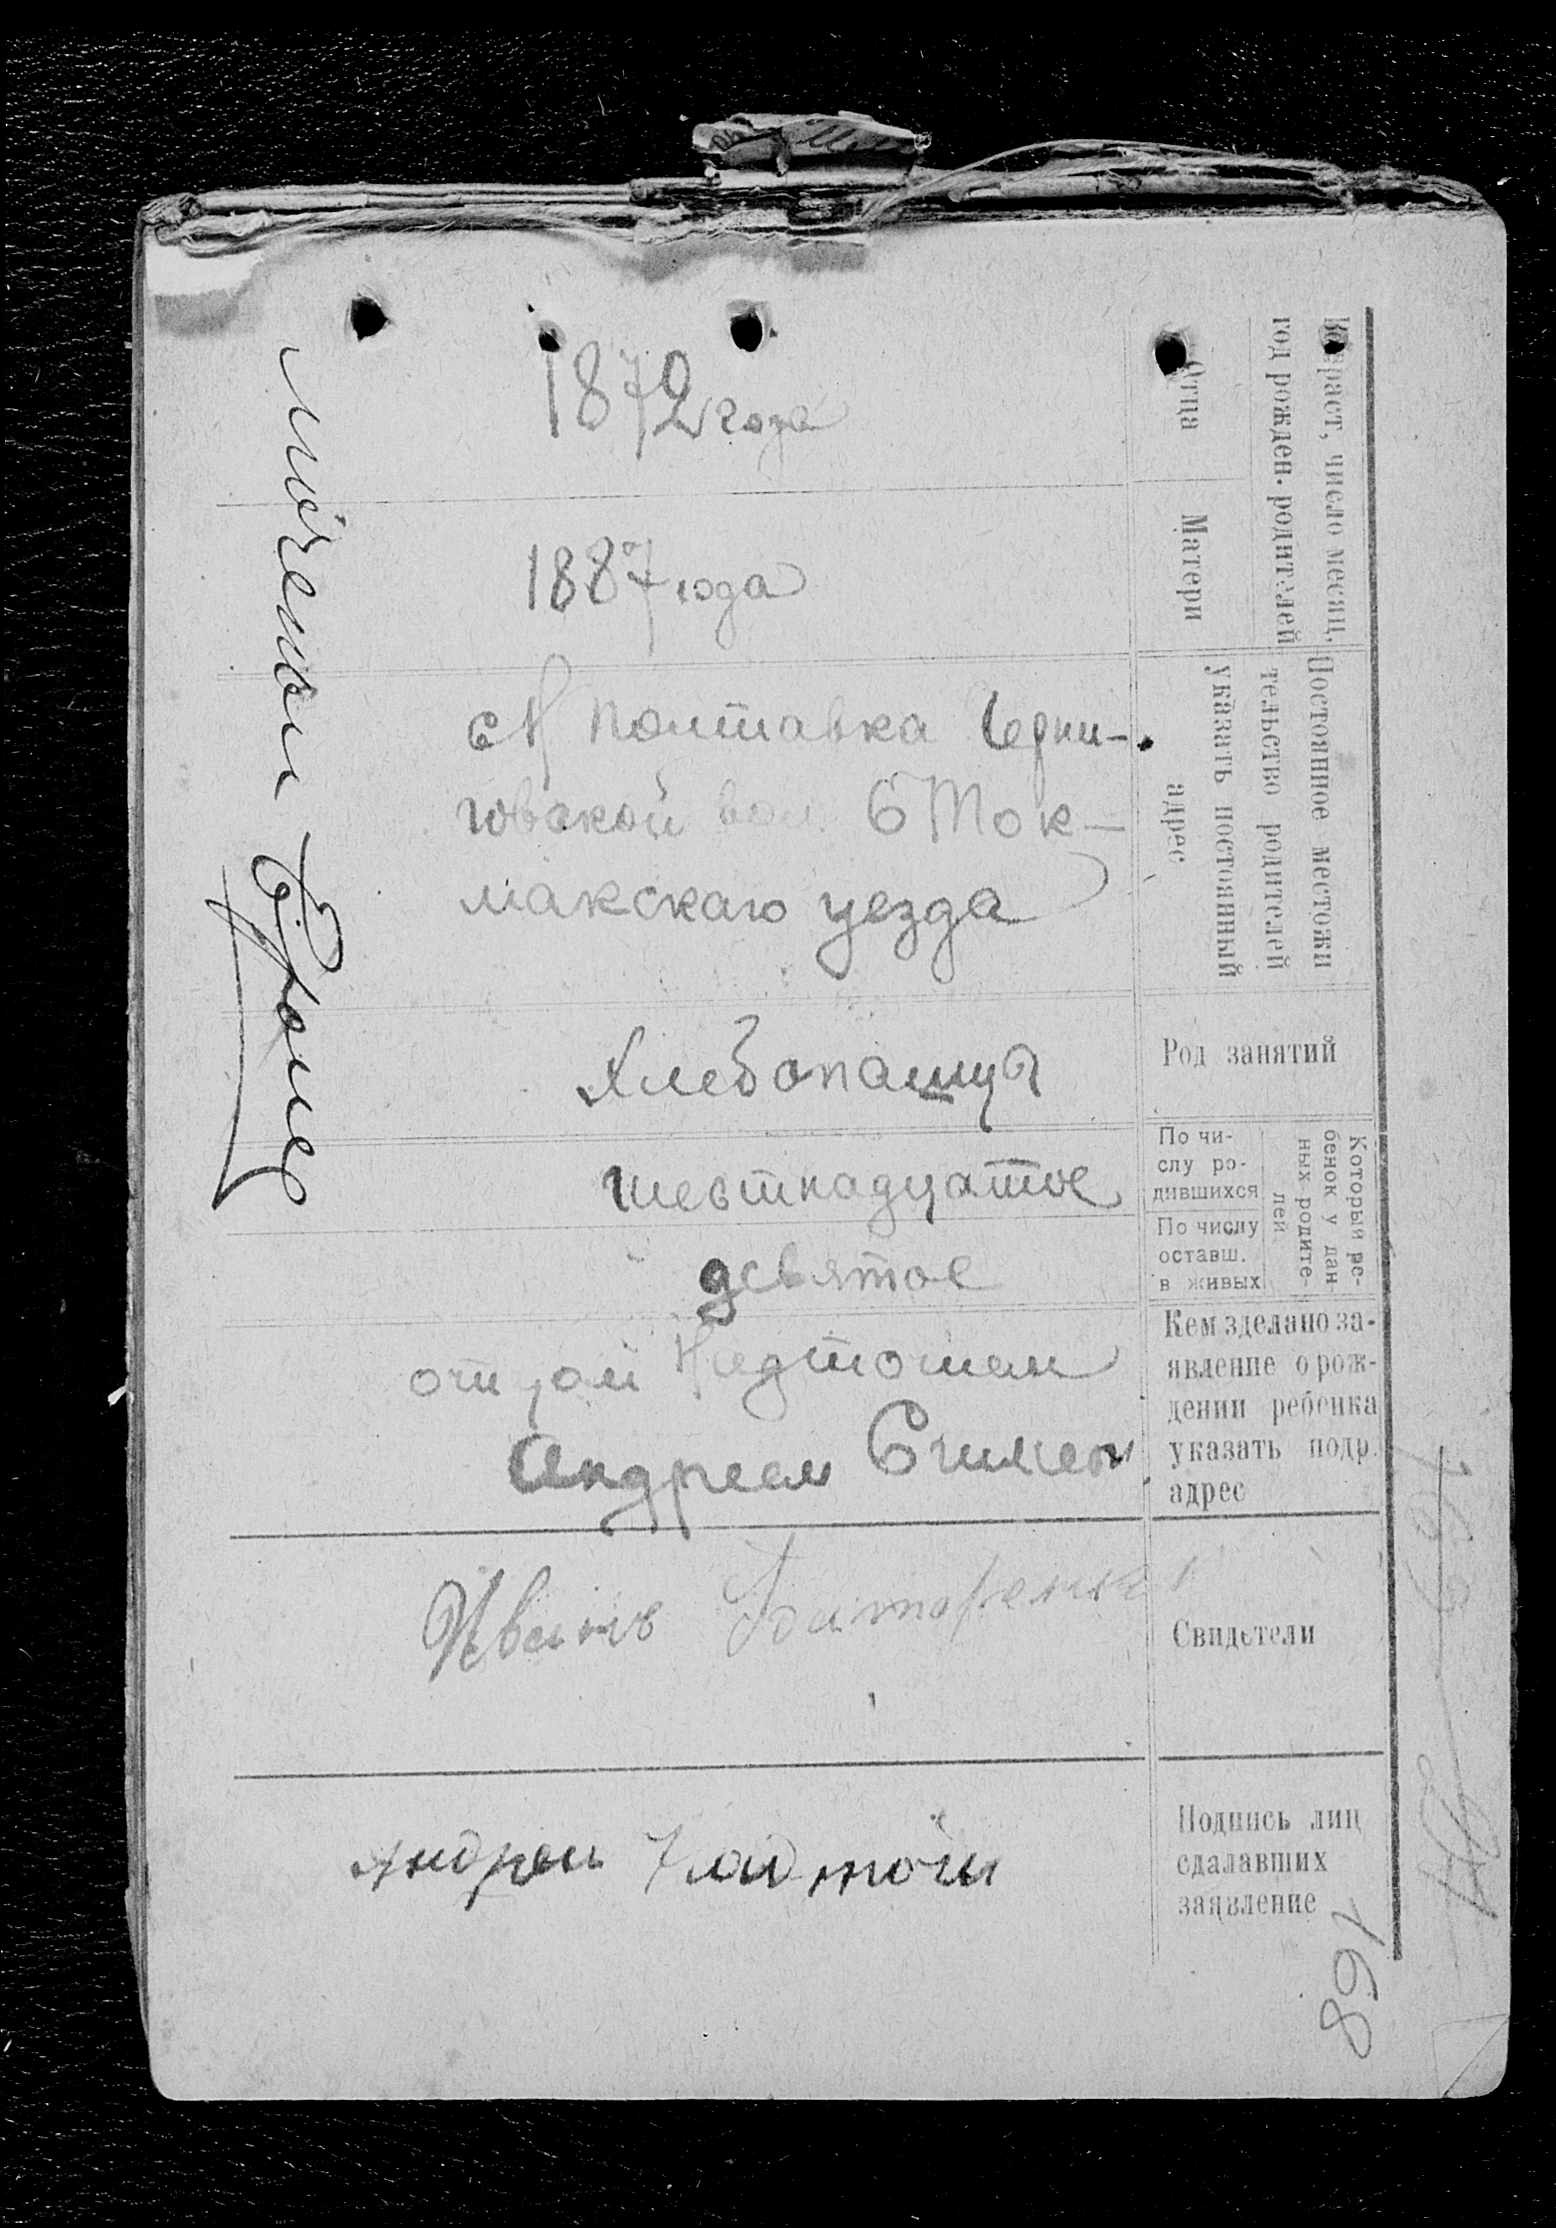 Возраст, число месяц,
год рожден. родителей
Отца
1872 года
Матери
1887 года
Постоянное местожи
тельство родителей
указать постоянный
адрес
с Н Полтавка Черни-
говской вол. Б Ток-
макскаго уезда
Род занятий
Хлебопашца
Который ре-
бенок у дан-
ных родите-
лей
По чи-
слу ро-
дившихся
шестнадцатое
По числу
оставш.
в живых
девятое
Кем зделано за-
явление о рож-
дении ребенка
указать подр.
адрес
отцом
Андреем
Свидетели
Иванъ
Подпись лиц
сдалавших
заявление
Андреи
168